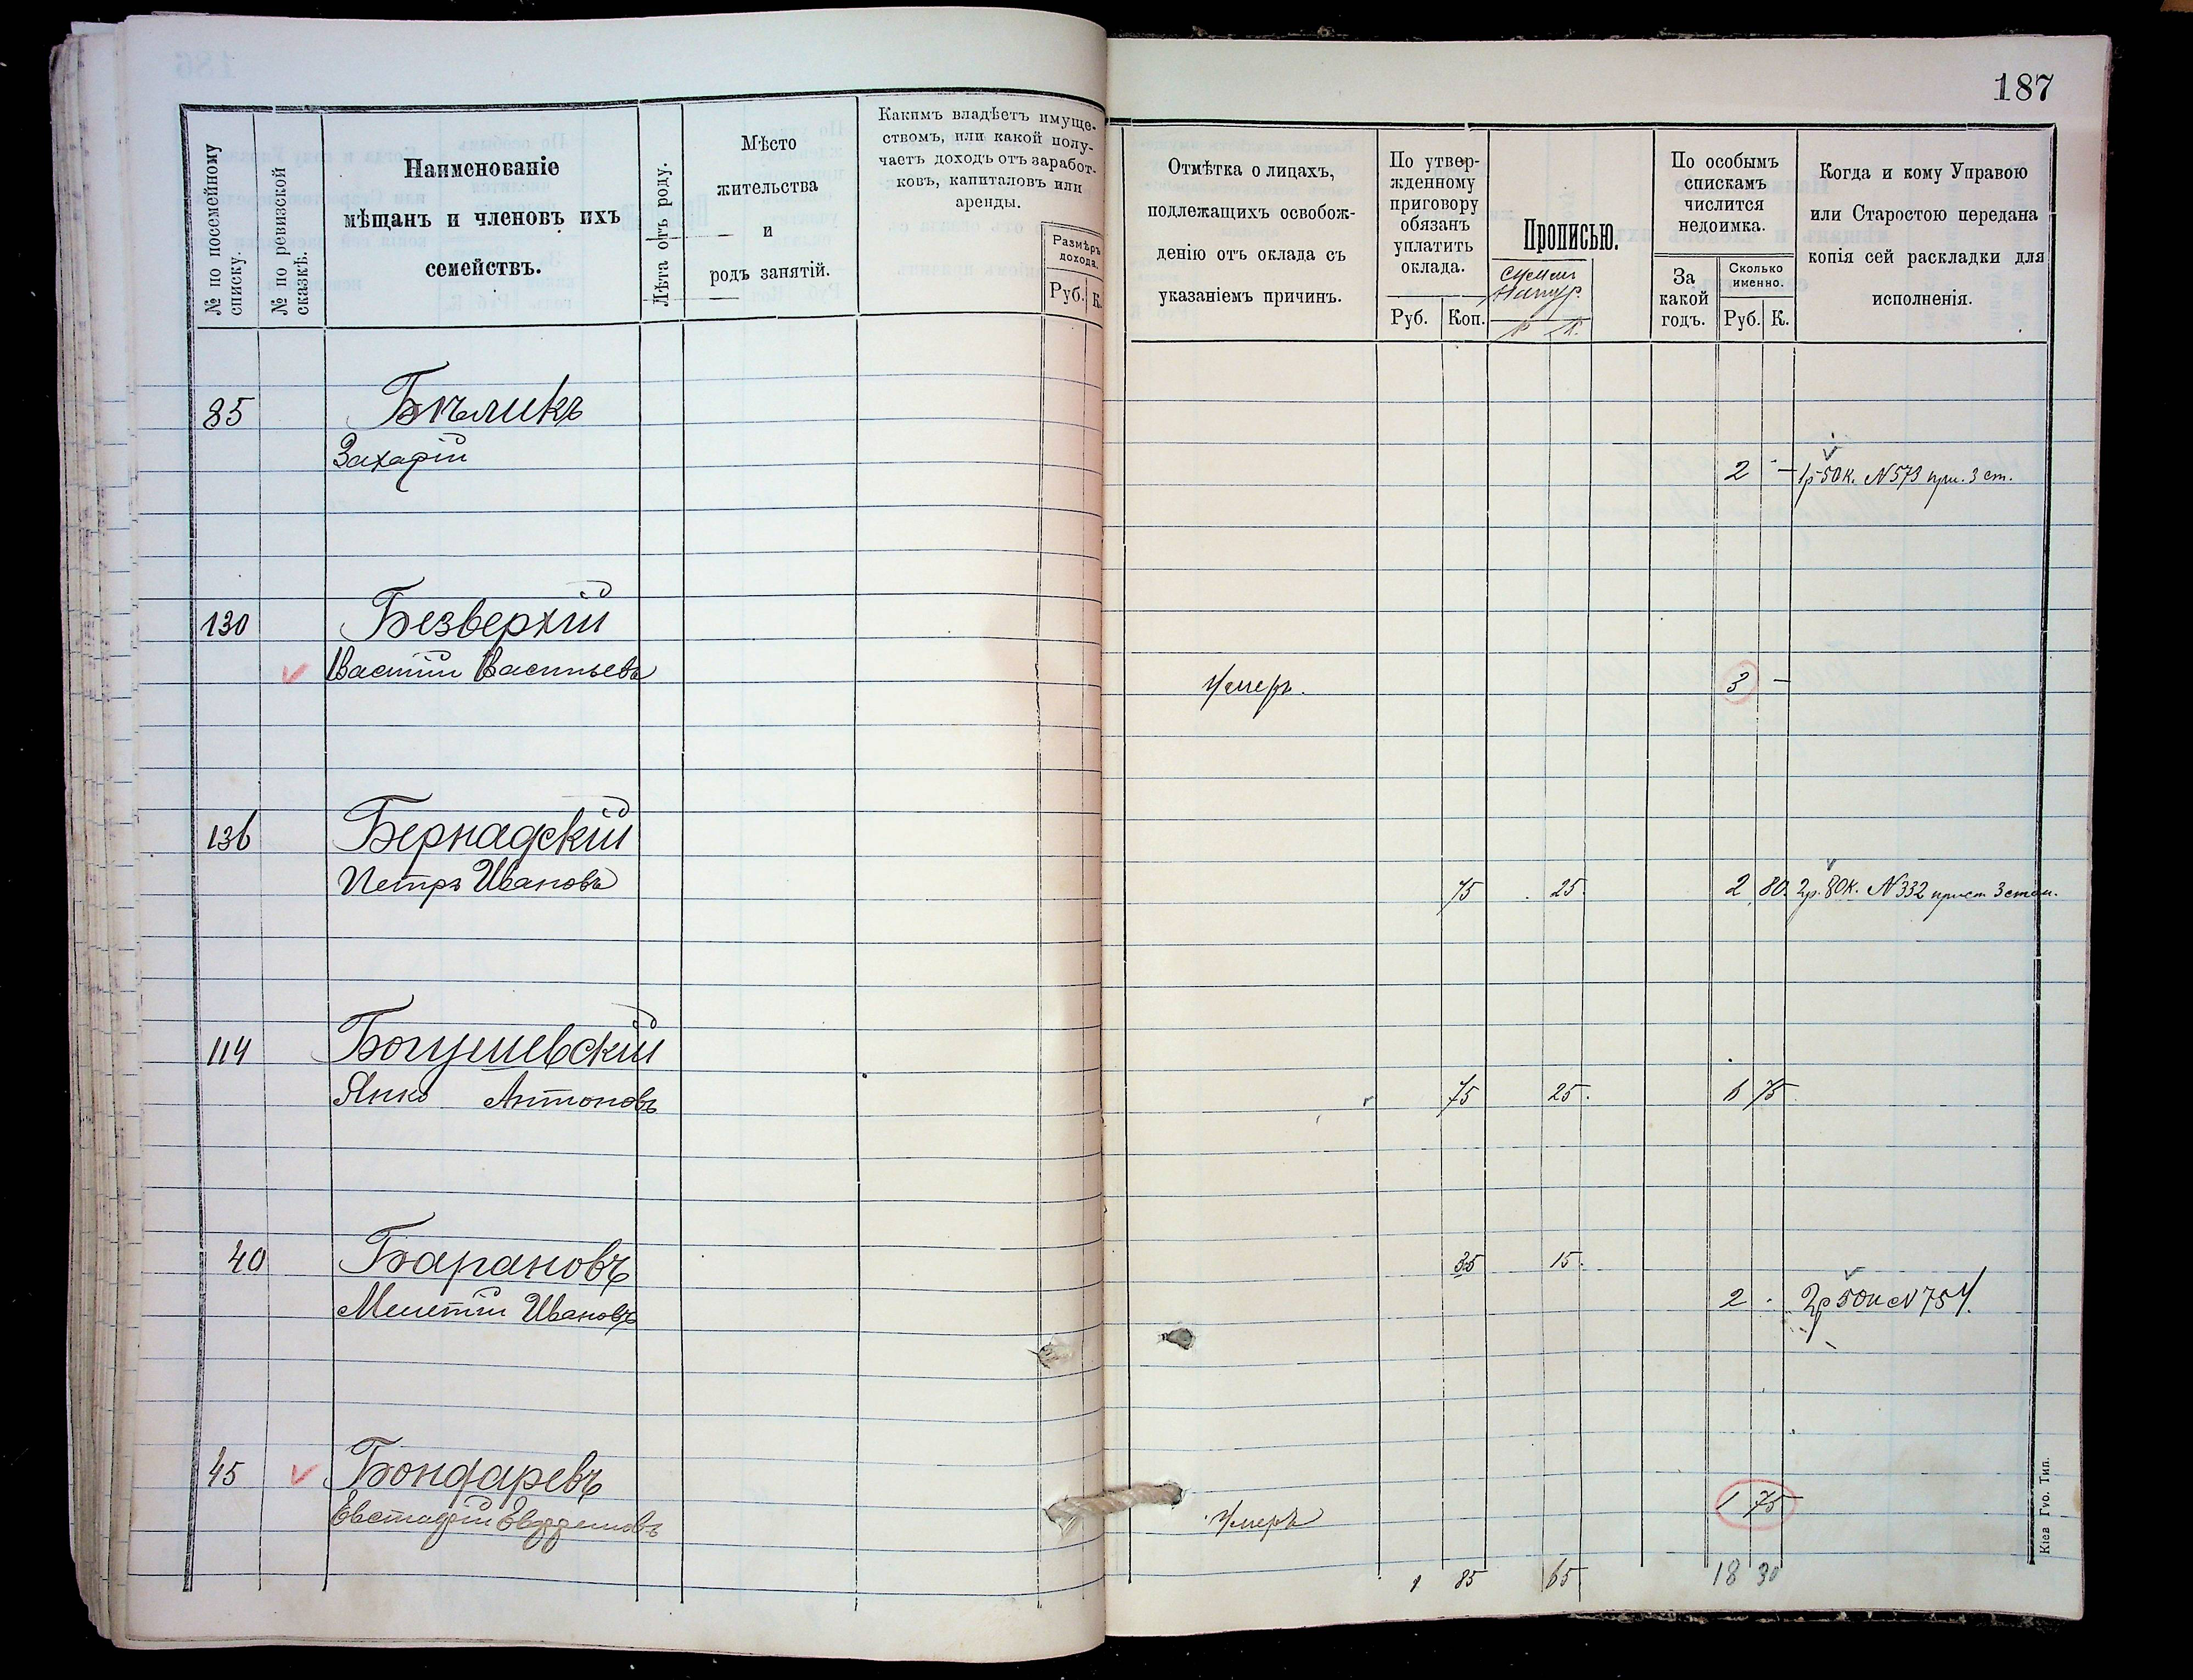 187
№ по посемейному
списку.
№ по ревизской
сказкѣ.
Наименованіе
мѣщанъ и членовъ ихъ
семействъ.
Лѣта отъ роду.
Мѣсто
жительства
и
родъ занятій.
Какимъ владѣетъ имуще-
ствомъ, или какой полу-
чаетъ доходъ отъ заработ-
ковъ, капиталовъ или
аренды.
Размѣръ
дохода.
Руб. К.
Отмѣтка о лицахъ,
подлежащихъ освобож-
денію отъ оклада съ
указаніемъ причинъ.
По утвер-
жденному
приговору
обязанъ
уплатить
оклада.
Руб. Коп.
Прописью.
Р К.
По особымъ
спискамъ
числится
недоимка.
За
какой
годъ.
Сколько
именно.
Руб. К.
Когда и кому Управою
или Старостою передана
копія сей раскладки для
исполненія.
85 Бѣликъ
Захарій 2 — 1р 50к. N 573 при. 3 ст.
130 Безверхій
Василій Васильевъ Умеръ. 3 —
136 Бернадскій
Петръ Ивановъ 75 25. 2 80. 2р. 80к. N 332 прист 3 стан.
114 Богушевскій
Янко Антоновъ 75 25. 6 75
40 Барановъ 35 15.
Мелетій Ивановъ 2 . 2р 50к N 754.
45 Бондаревъ
Евстафій Евфремовъ Умеръ 1 75
1 85 65 18 30
Кіев Губ. Тип.